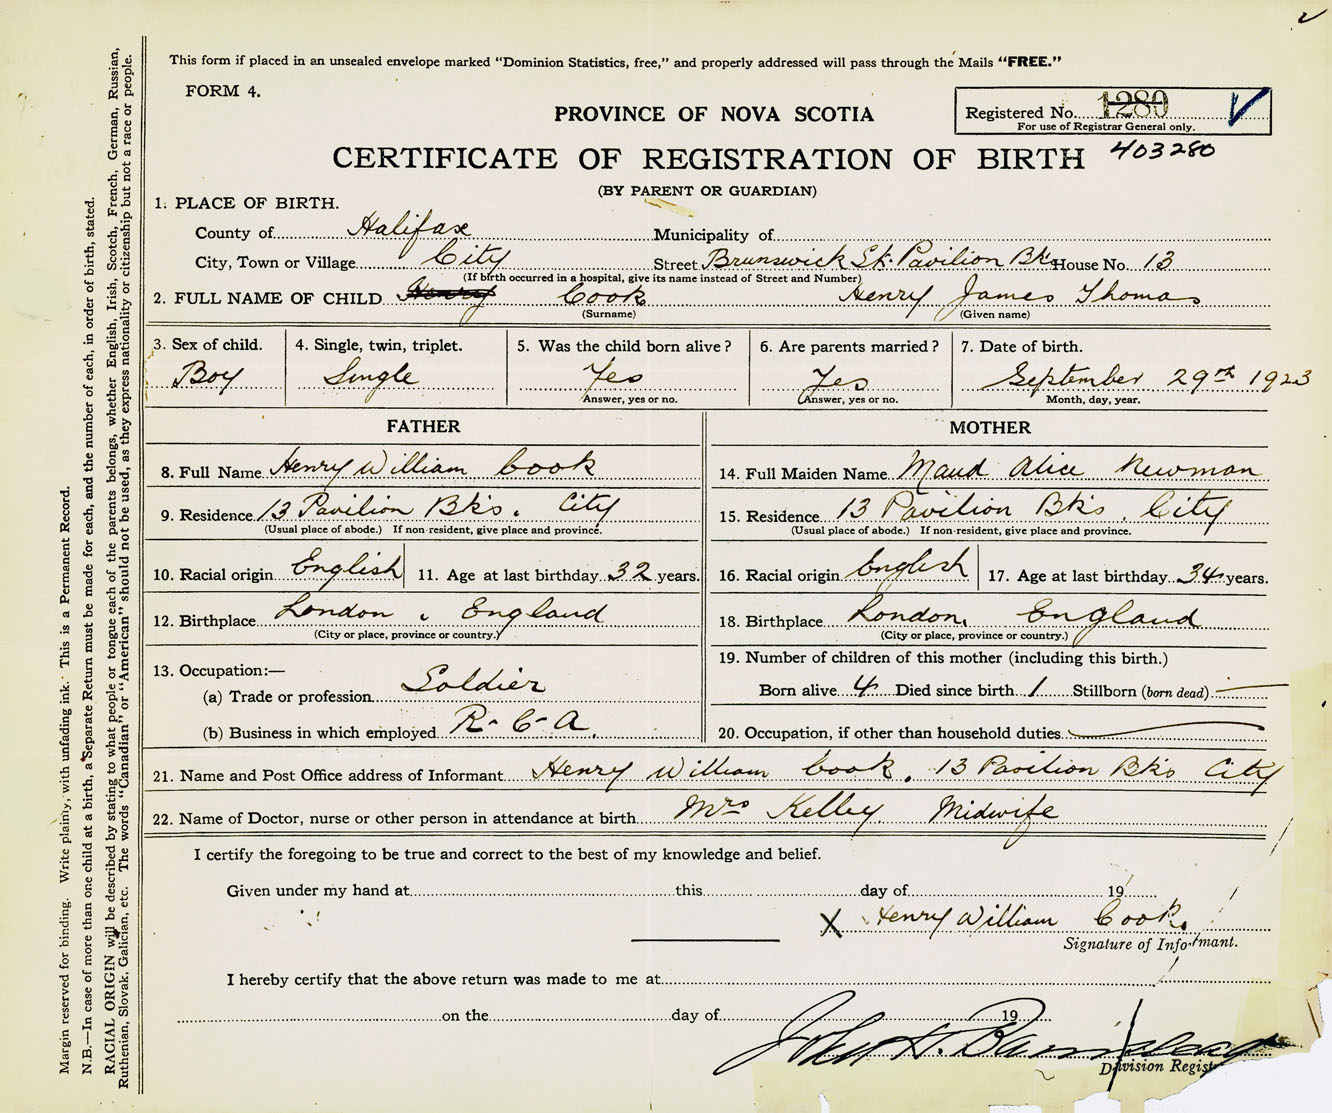 This form if placed in an unsealed envelope marked “Dominion Statistics, free,” and properly addressed will pass through the Mails “FREE.”
FORM 4.
PROVINCE OF NOVA SCOTIA
Registered No. 1280
For use of Registrar General only.
CERTIFICATE OF REGISTRATION OF BIRTH 403280
(BY PARENT OR GUARDIAN)
1. PLACE OF BIRTH.
County of Halifax Municipality of
City, Town or Village City Street Brunswick St. Pavilion Bks House No. 13
(If birth occurred in a hospital, give its name instead of Street and Number)
2. FULL NAME OF CHILD Henry Cook Henry James Thomas
(Surname) (Given name)
3. Sex of child. 4. Single, twin, triplet. 5. Was the child born alive? 6. Are parents married? 7. Date of birth.
Boy Single Yes Yes September 29th 1923
Answer, yes or no. Answer, yes or no. Month, day, year.
FATHER MOTHER
8. Full Name Henry William Cook 14. Full Maiden Name Maud Alice Newman
9. Residence 13 Pavilion Bks. City 15. Residence 13 Pavilion Bks. City
(Usual place of abode.) If non-resident, give place and province. (Usual place of abode.) If non-resident, give place and province.
10. Racial origin English 11. Age at last birthday 32 years. 16. Racial origin English 17. Age at last birthday 34 years.
12. Birthplace London, England 18. Birthplace London, England
(City or place, province or country.) (City or place, province or country.)
13. Occupation:— 19. Number of children of this mother (including this birth.)
(a) Trade or profession Soldier Born alive 4 Died since birth 1 Stillborn (born dead) —
(b) Business in which employed R-C-A. 20. Occupation, if other than household duties —
21. Name and Post Office address of Informant Henry William Cook. 13 Pavilion Bks City
22. Name of Doctor, nurse or other person in attendance at birth Mrs Kelley Midwife
I certify the foregoing to be true and correct to the best of my knowledge and belief.
Given under my hand at this day of 19
X Henry William Cook.
Signature of Informant.
I hereby certify that the above return was made to me at
on the day of 19
John A.
Division Regist
Margin reserved for binding. Write plainly, with unfading ink. This is a Permanent Record.
N.B.—In case of more than one child at a birth, a Separate Return must be made for each, and the number of each, in order of birth, stated.
RACIAL ORIGIN will be described by stating to what people or tongue each of the parents belongs, whether English, Irish, Scotch, French, German, Russian,
Ruthenian, Slovak, Galician, etc. The words “Canadian” or “American” should not be used, as they express nationality or citizenship but not a race or people.